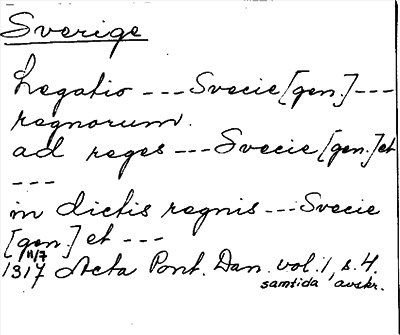 Sverige
Legatio --- Svecie [gen.] ---
regnorum.
ad reges --- Svecie [gen.] et
---
in dictis regnis --- Svecie
[gen.] et ---
11/7
1317 Acta Pont. Dan. vol. 1, s. 4.
samtida avskr.